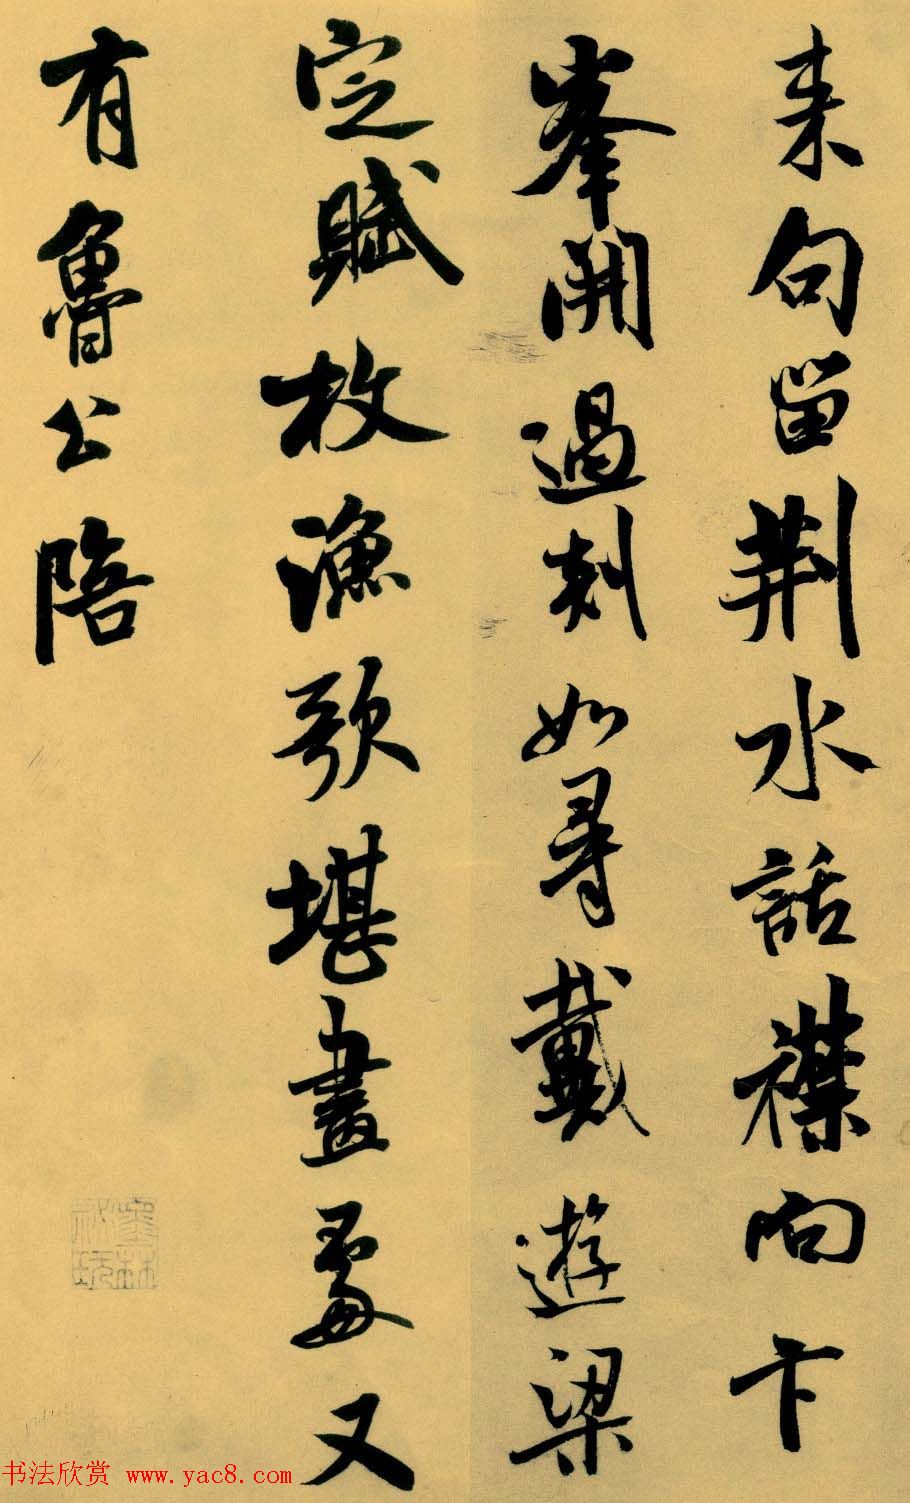 来句留荆水話襟向卞
峯開過剡如尋戴遊梁
定賦枚漁歌堪畫處又
有魯公陪
墨林秘玩
书法欣赏 www.yac8.com